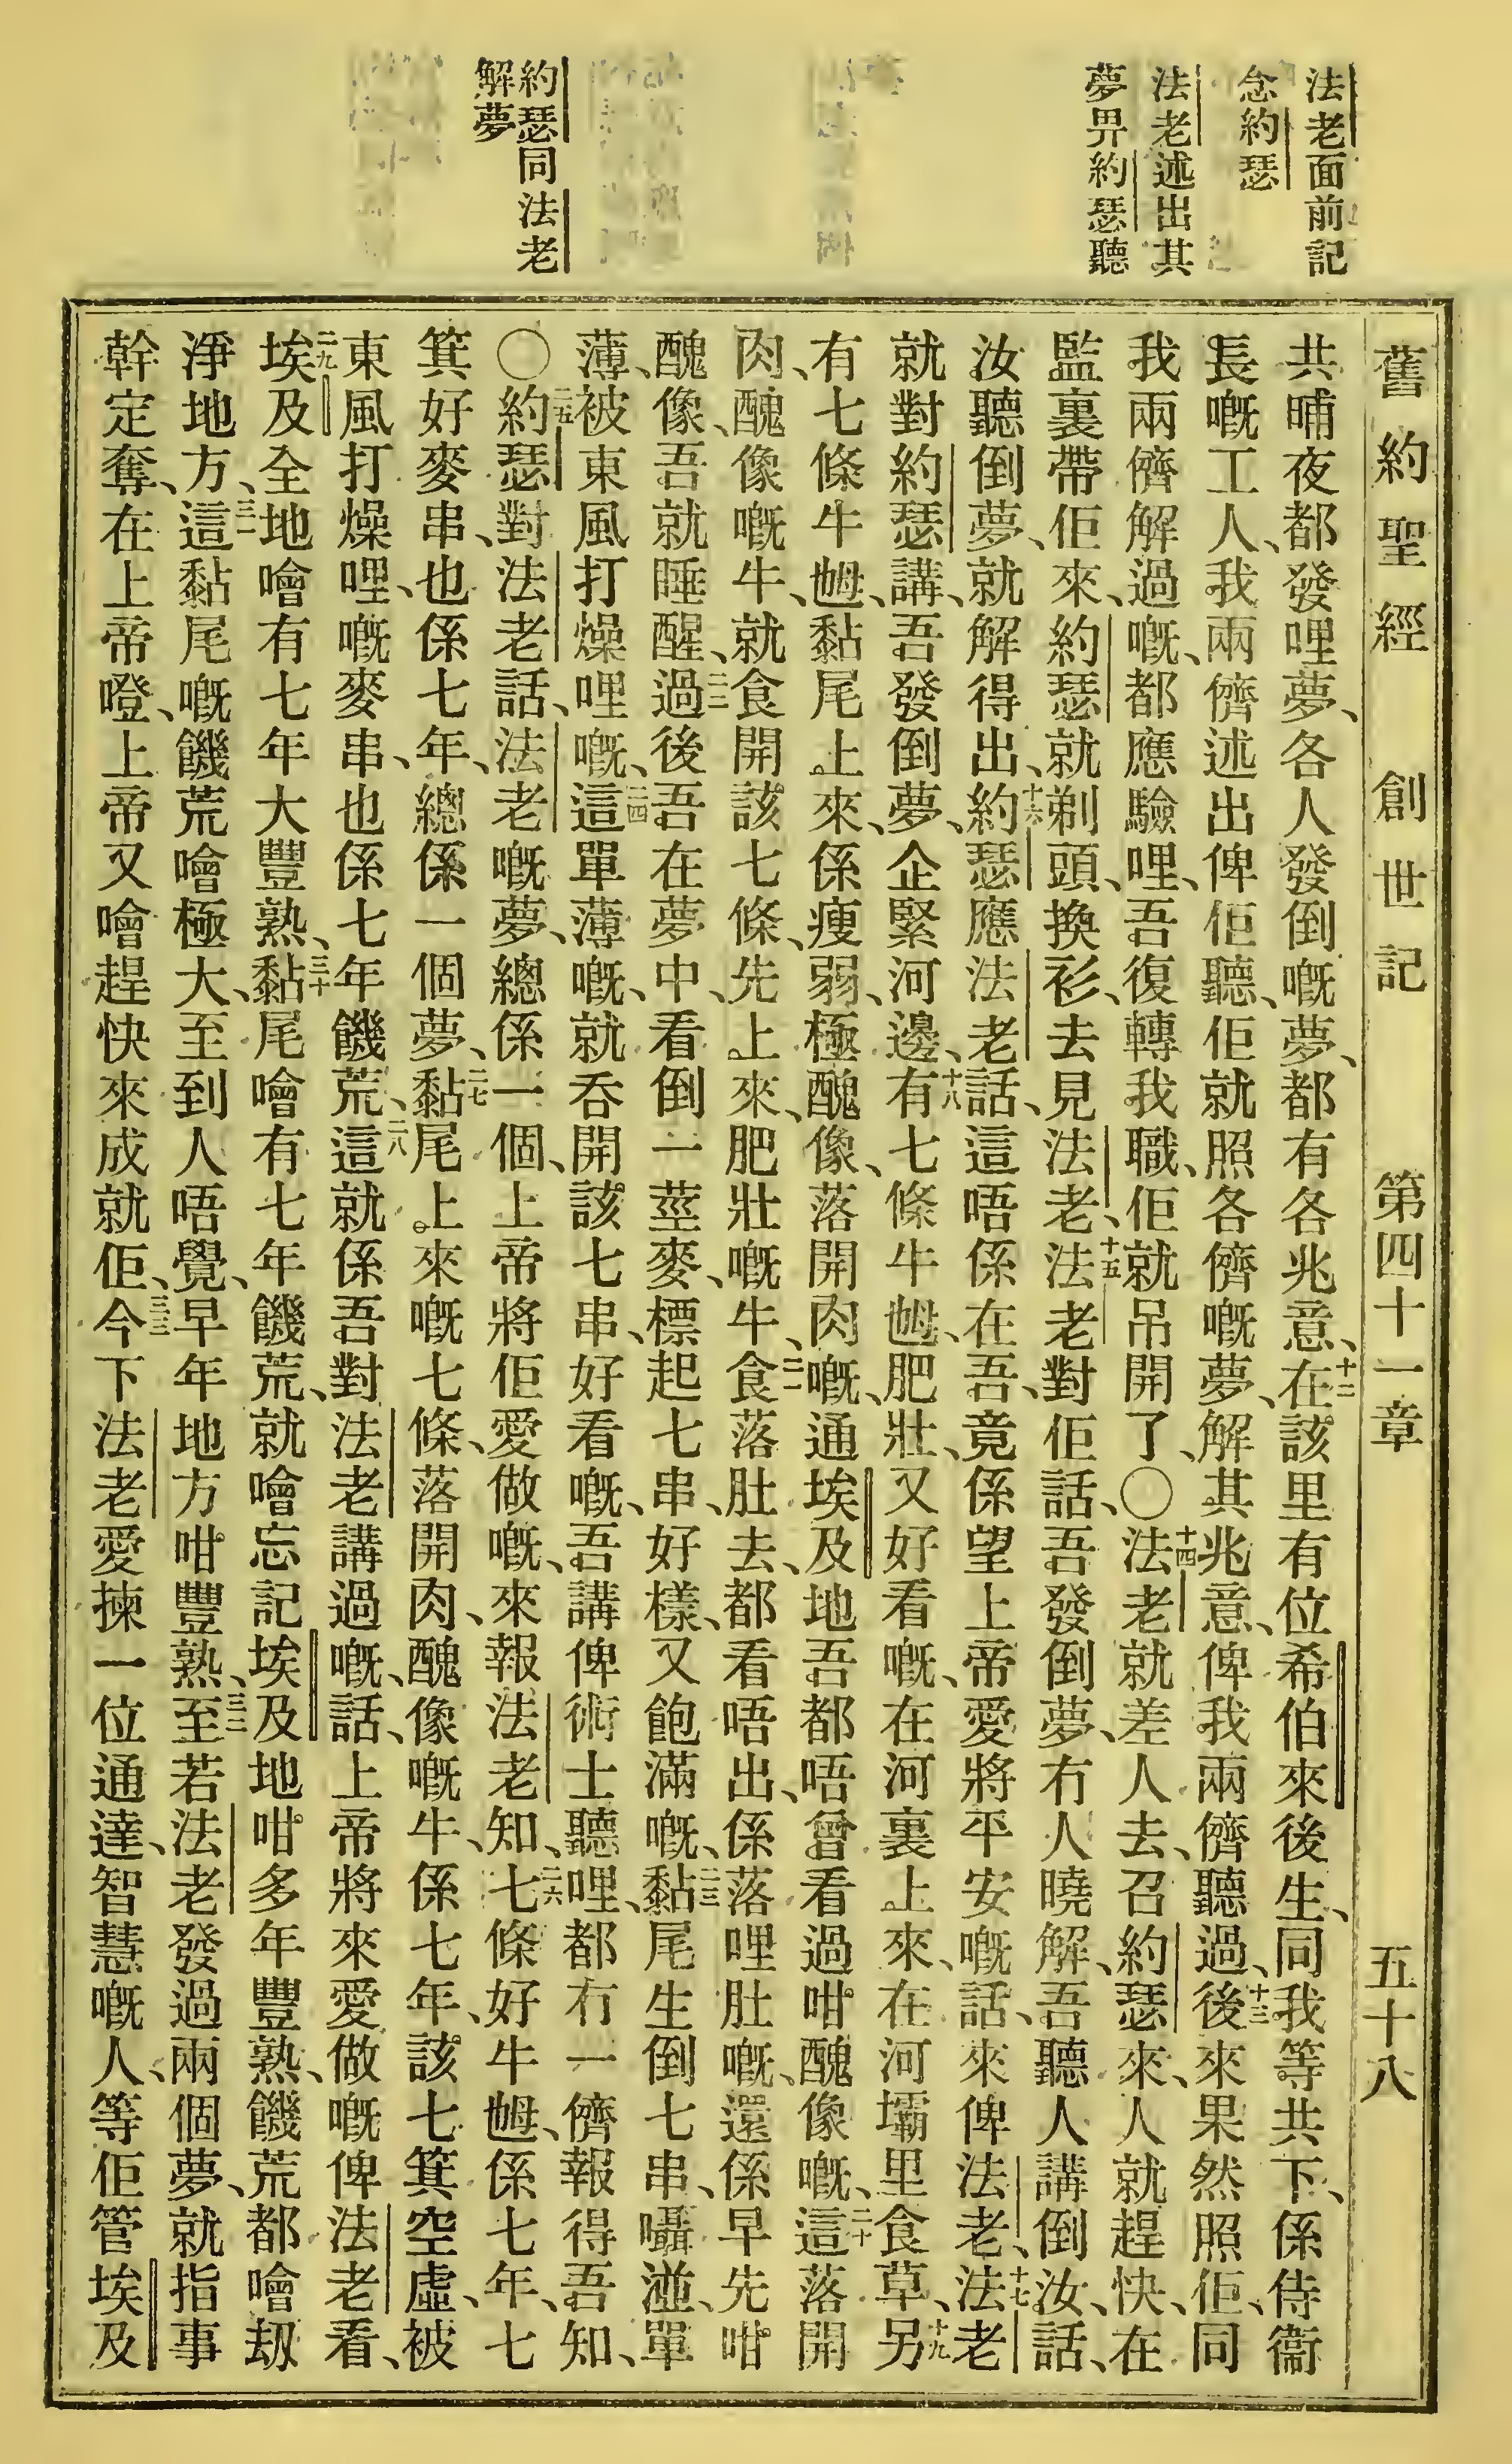 法老面前記
念約瑟
法老述出其
夢畀約瑟聽
約瑟同法老
解夢
舊約聖經 創世記 第四十一章 五十八
共晡夜都發哩夢、各人發倒嘅夢、都有各兆意、十二在該里有位希伯來後生、同我等共下、係侍衞
長嘅工人、我兩儕述出俾佢聽、佢就照各儕嘅夢、解其兆意、俾我兩儕聽過、十三後來果然照佢、同
我兩儕解過嘅、都應驗哩、吾復轉我職、佢就吊開了、〇十四法老就差人去、召約瑟來、人就趕快、在
監裏帶佢來、約瑟就剃頭、換衫、去見法老、十五法老對佢話、吾發倒夢、冇人曉解、吾聽人講倒汝、話、
汝聽倒夢、就解得出、十六約瑟應法老話、這唔係在吾、竟係望上帝愛將平安嘅話、來俾法老、十七法老
就對約瑟講、吾發倒夢、企緊河邊、十八有七條牛乸、肥壯、又好看嘅、在河裏上來、在河壩里食草、十九另
有七條牛乸、黏尾上來、係瘦弱、極醜像、落開肉嘅、通埃及地吾都唔曾看過咁醜像嘅、二十這落開
肉、醜像嘅牛、就食開該七條、先上來、肥壯嘅牛、二一食落肚去、都看唔出、係落哩肚嘅、還係早先咁
醜像、吾就睡醒、二二過後吾在夢中、看倒一莖麥、標起七串、好樣、又飽滿嘅、二三黏尾生倒七串、囁𣺫、單
薄、被東風打燥哩嘅、二四這單薄嘅、就吞開該七串、好看嘅、吾講俾術士聽哩、都冇一儕報得吾知、
〇二五約瑟對法老話、法老嘅夢、總係一個、上帝將佢愛做嘅、來報法老知、二六七條好牛乸、係七年、七
箕好麥串、也係七年、總係一個夢、二七黏尾上來嘅七條、落開肉、醜像嘅牛、係七年、該七箕空虛、被
東風打燥哩、嘅麥串、也係七年饑荒、二八這就係吾對法老講過嘅、話、上帝將來愛做嘅俾法老看、
二九埃及全地噲有七年大豐熟、三十黏尾噲有七年饑荒、就噲忘記埃及地咁多年豐熟、饑荒都噲刧
淨地方、三一這黏尾嘅饑荒噲極大、至到人唔覺、早年地方咁豐熟、三二至若法老發過兩個夢、就指事
幹定奪、在上帝噔、上帝又噲趕快來成就佢、三三今下法老愛揀一位通達、智慧嘅人、等佢管埃及